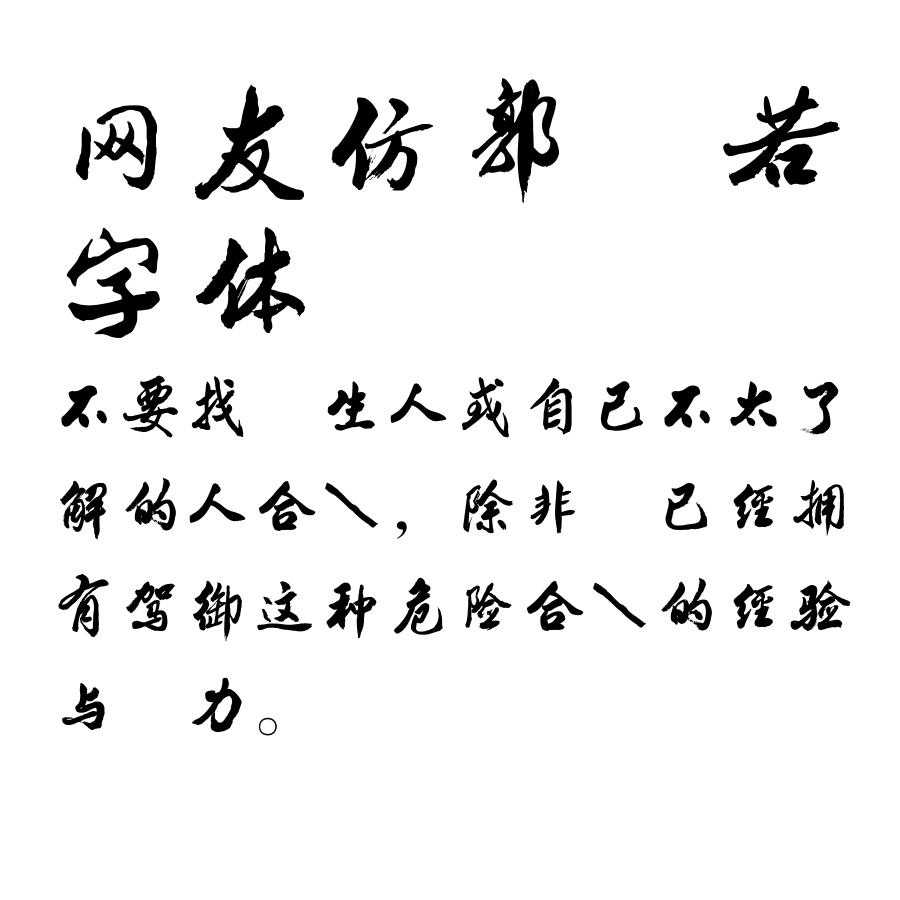 网友仿郭 若
字体
不要找 生人或自己不太了
解的人合\，除非 已经拥
有驾御这种危险合\的经验
与 力。